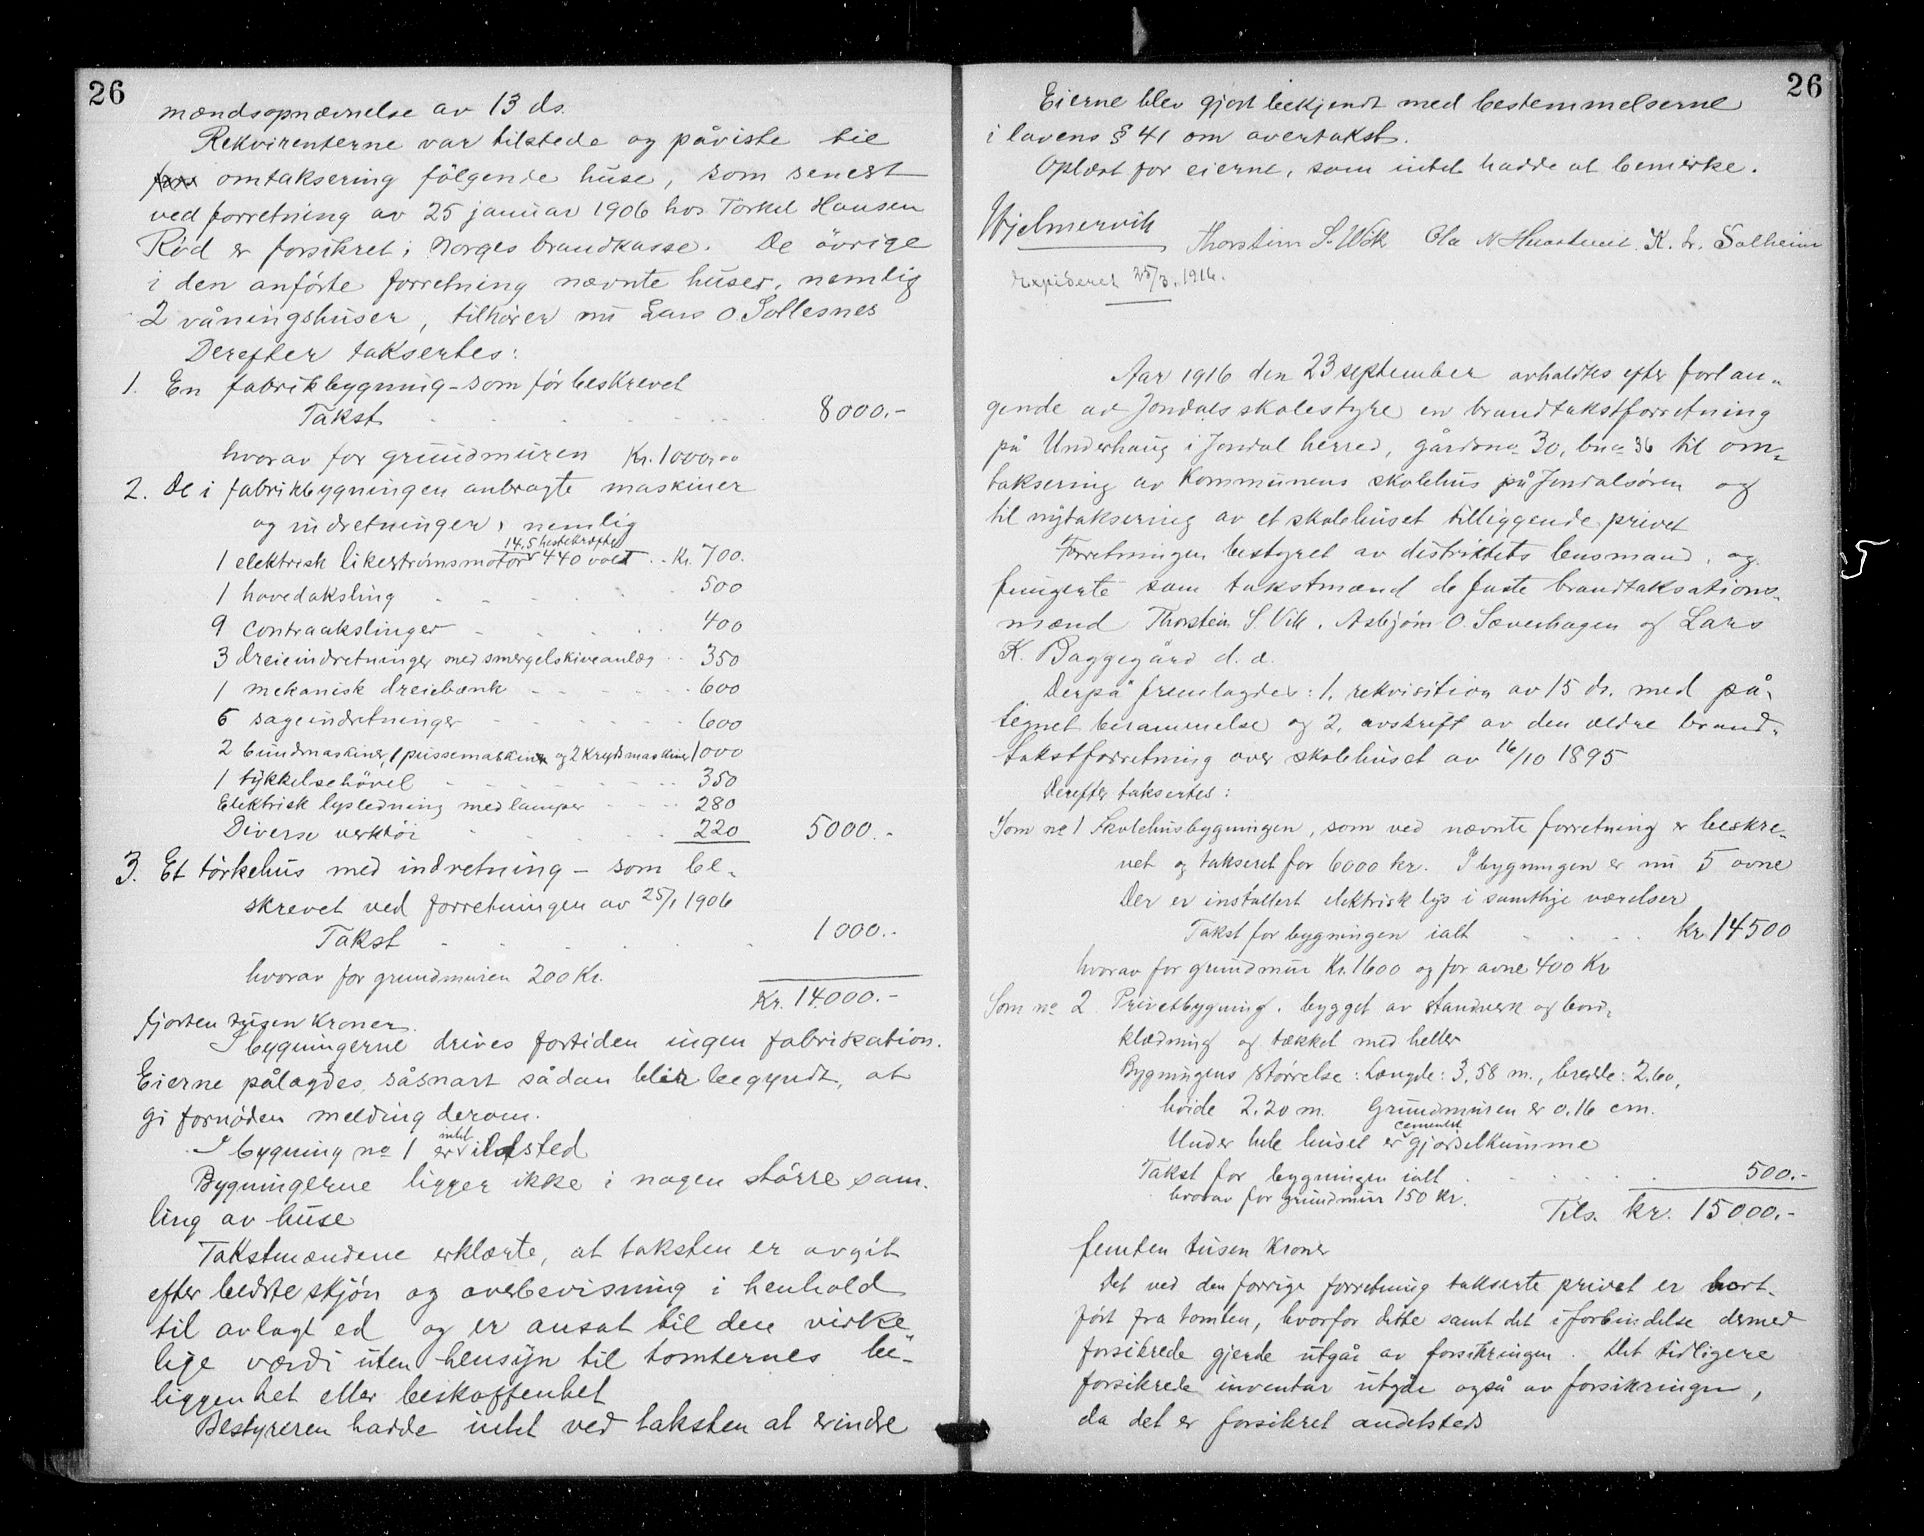 26
mændsopnævnelse av 13 ds.
Rekvirenterne var tilstede og påviste til
for omtaksering følgende huse, som senest
ved forretning av 25 januar 1906 hos Torkel Hansen
Rød er forsikret i Norges brandkasse. De øvrige
i den anførte forretning nævnte huser, nemlig
2 våningshuser, tilhører nu Lars O Sollesnes
Derefter taksertes:
1. En fabrikbygning - som før beskrevet
Takst 8000.-
hvorav for grundmuren Kr. 1000,00
2. De i fabrikbygningen anbragte maskiner
og indretninger, nemlig
14,5 hestekræfter
1 elektrisk likestrømsmotor 440 volt . . Kr. 700.
1 hovedaksling 500
9 contraakslinger 400
3 dreieindretninger med smergelskiveanlæg 350
1 mekanisk dreiebænk 600
6 sageindretninger 600
2 bundmaskiner, 1 pussemaskine og 2 krydsmaskiner 1000
1 tykkelsehövel 350
Elektrisk lysledning med lamper 280
Diverse verktöi 220 5000.-
3. Et törkehus med indretning - som be-
skrevet ved forretningen av 25/1 1906
Takst 1000.-
hvorav for grundmuren 200 Kr.
Kr. 14000.-
fjorten tusen Kroner.
I bygningerne drives fortiden ingen fabrikation.
Eierne pålagdes, såsnart sådan blir begyndt, at
gi fornøden melding derom.
intet
I bygning no 1 er ildsted
Bygningerne ligger ikke i nogen større sam-
ling av huse
Takstmændene erklærte, at taksten er avgit
efter bedste skjøn og overbevisning i henhold
til avlagt ed og er ansat til den virke-
lige værdi uten hensyn til tomternes be-
liggenhet eller beskaffenhet
Bestyreren hadde intet ved taksten at erindre
26
Eierne blev gjort bekjendt med bestemmelserne
i lovens § 41 om overtakst.
Oplæst for eierne, som intet hadde at bemerke.
Hjelmervik
Thorstein S. Vik Ola N Huastveit K. L. Solheim
Expederet 25/3. 1916.
Aar 1916 den 23 september avholdtes efter forlan-
gende av Jondals skolestyre en brandtakstforretning
på Underhaug i Jondal herred, gårdsno 30, bno 36 til om-
taksering av Kommunens skolehus på Jondalsøren og
til nytaksering av et skolehuset tilliggende privet
Forretningen bestyret av distriktets lensmand, og
fungerte som takstmænd de faste brandtaksations-
mænd Thorstein S. Vik, Asbjørn O. Sæverhagen og Lars
K. Baggegård d. e.
Derpå fremlagdes: 1, rekvisition av 15 ds. med på-
tegnet berammelse og 2, avskrift av den ældre brand-
takstforretning over skolehuset av 16/10 1895
Derefter taksertes:
Som no 1 Skolehusbygningen, som ved nævnte forretning er beskre-
vet og takseret for 6000 kr. I bygningen er nu 5 ovne
Der er installert elektrisk lys i samtlige værelser
Takst for bygningen ialt kr. 14500
hvorav for grundmur Kr. 1600 og for ovne 400 Kr
Som no 2. Privetbygning, bygget av standverk og bord-
klædning og tækket med heller
Bygningens størrelse: Længde: 3,58 m., bredde: 2.60,
høide 2.20 m. Grundmuren er 0,16 cm.
cementet
Under hele huset er gjødselkumme
Takst for bygningen ialt 500.-
hvorav for grundmur 150 kr.
Tils. kr. 15000.-
femten tusen Kroner
Det ved den forrige forretning takserte privet er bort-
ført fra tomten, hvorfor dette samt det i forbindelse dermed
forsikrede gjerde utgår av forsikringen. Det tidligere
forsikrede inventar utgår også av forsikringen,
da det er forsikret andetsteds
5